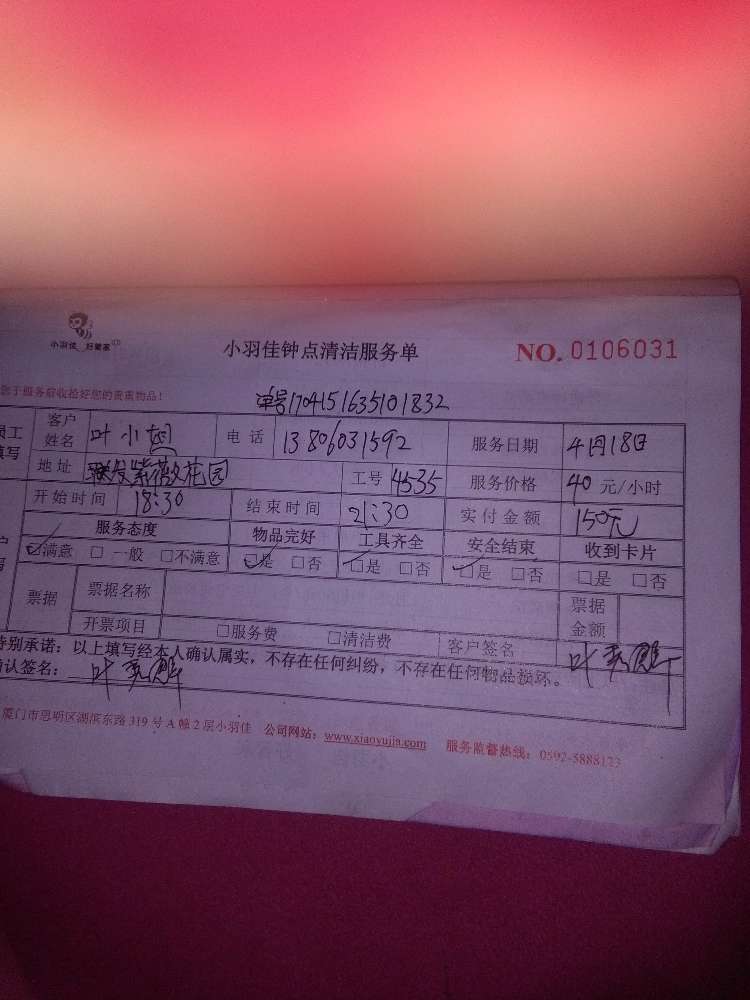 小羽佳 好管家
小羽佳钟点清洁服务单
NO. 0106031
您于服务前收拾好您的贵重物品!
单号1704151635101832
员工 填写
客户姓名 叶小姐 电话 13806031592 服务日期 4月18日
地址 联发紫薇花园 工号 4535 服务价格 40 元/小时
开始时间 18:30 结束时间 21:30 实付金额 150元
服务态度 物品完好 工具齐全 安全结束 收到卡片
☑满意 □一般 □不满意 ☑是 □否 ☑是 □否 ☑是 □否 □是 □否
票据 票据名称 票据金额
开票项目 □服务费 □清洁费 客户签名 叶
特别承诺:以上填写经本人确认属实,不存在任何纠纷,不存在任何物品损坏。
确认签名: 叶
厦门市思明区湖滨东路 319 号 A 幢 2 层小羽佳 公司网站:www.xiaoyujia.com 服务监督热线:0592-5888123